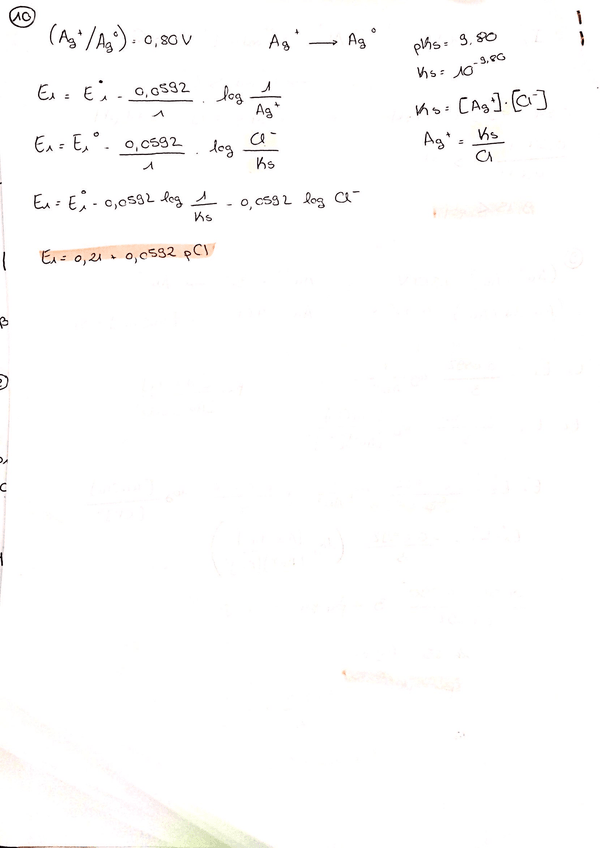 10
(Ag⁺/Ag°) = 0,80 V Ag⁺ → Ag° pKs = 9.80
Ks = 10^-9,80
E1 = E°1 - 0,0592/1 · log 1/Ag⁺ Ks = [Ag⁺]·[Cl⁻]
E1 = E1° - 0,0592/1 · log Cl⁻/Ks Ag⁺ = Ks/Cl
E1 = E°1 - 0,0592 log 1/Ks - 0,0592 log Cl⁻
E1 = 0,21 + 0,0592 pCl